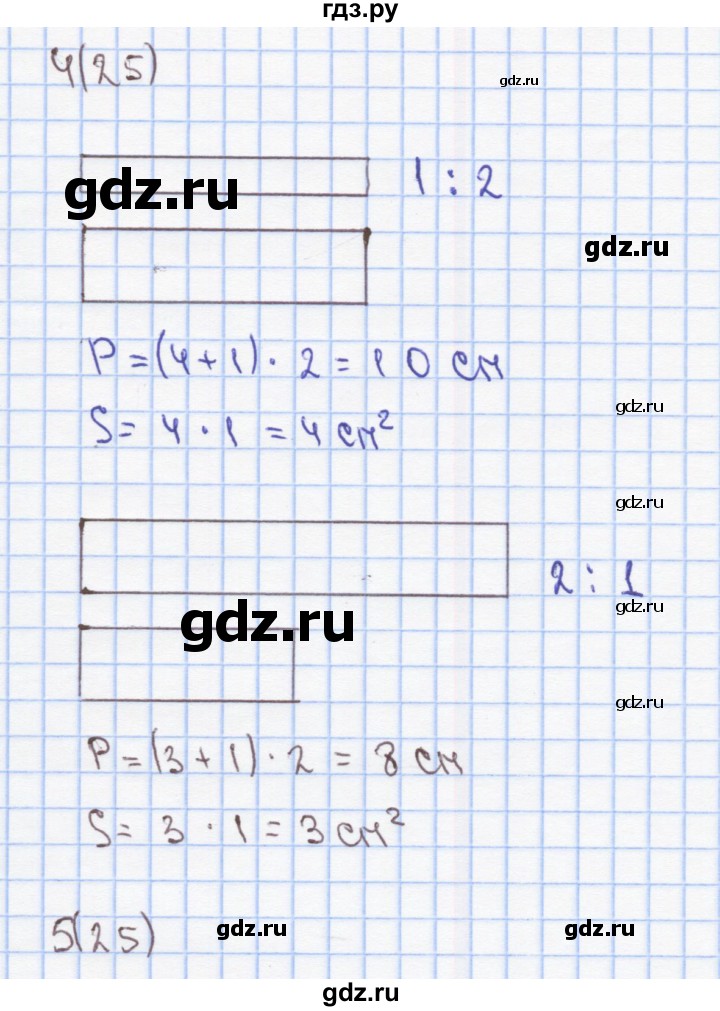 гдз.ру
4(25)
gdz.ru
gdz.ru
1 : 2
gdz.ru
P = (4 + 1) · 2 = 10 см
gdz.ru
S = 4 · 1 = 4 см²
gdz.ru
2 : 1
gdz.ru
gdz.ru
gdz.ru
P = (3 + 1) · 2 = 8 см
S = 3 · 1 = 3 см²
5(25)
gdz.ru
gdz.ru
gdz.ru